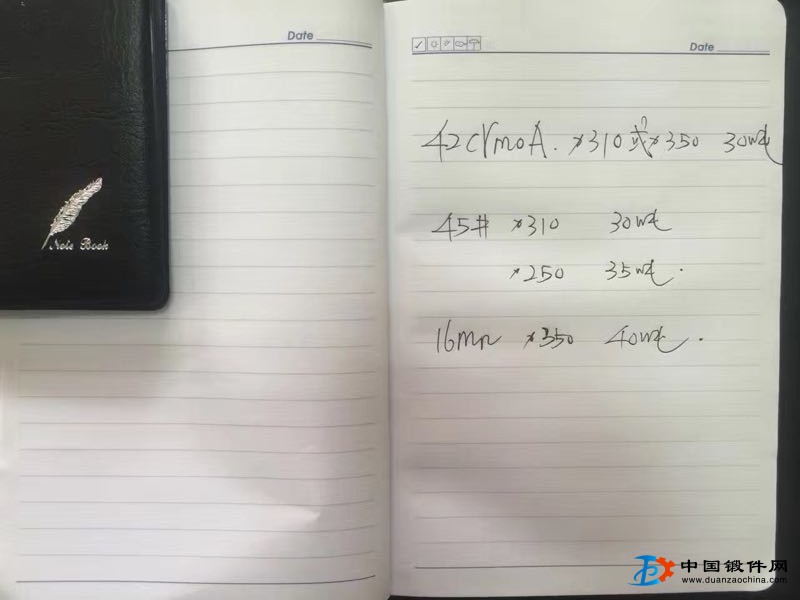 Note Book
Date
Date
42crmoA. *310或*350 30吨
45# *310 30吨
*250 35吨.
16mn *350 40吨.
中国锻件网
www.duanzaochina.com